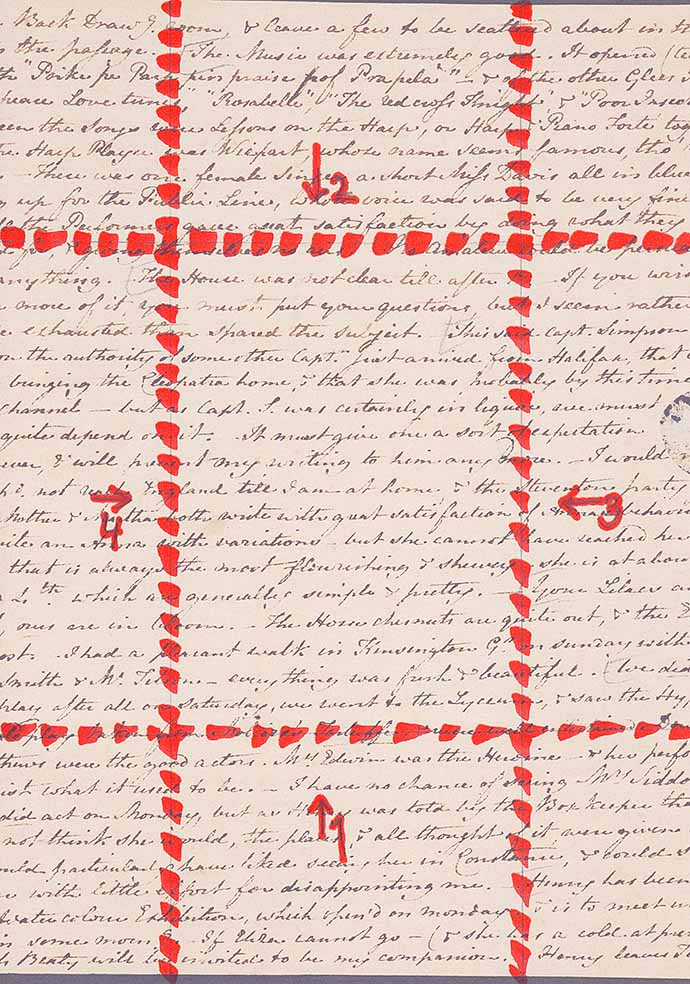 Back Draw g room, & leave a few to be scattered about in
in the passage. — The Music was extremely good. It opened
the "Prike pe Parp pin praise pof Prapela" — & of the other Glees
peace Love tunes," "Rosabelle", "The red cross Knight", & "Poor Insect
the Songs were Lessons on the Harp, or Harp & Piano Forte
the Harp Player was Wiepart, whose name seems famous, tho'
There was one female Singer, a short Miss Davis all in blue
2
up for the Public Line, whose voice was said to be very fine
the Performers gave great satisfaction by doing what they
for, & giving themselves no airs. No Amateur could be
anything. The House was not clear till after If you wish
more of it you must put your questions, but I seem rather
exhausted than spared the subject. This said Capt. Simpson
on the authority of some other Capt. just arrived from Halifax, that
bringing the Cleopatra home, & that she was probably by this time
Channel — but as Capt. S. was certainly in liquor, we must
quite depend on it. It must give one a sort of expectation
& will prevent my writing to him any more. — I would
not England till I am at home & the Steventon party
4
3
Mother & both write with great satisfaction of Anna's behaviour
an Anna with variations — but she cannot have reached her
that is always the most flourishing & shewey — she is at about
which are generally simple & pretty. — Your Lilacs
ours are in bloom. The Horse chesnuts are quite out, & the
I had a pleasant walk in Kensington Gs on Sunday with
Smith & Mr. Tilson — everything was fresh & beautiful. We did
play after all on Saturday, we went to the Lyceum, & saw the
taken from Moliere's Tartuffe, & were well entertained
were the good actors. Mrs Edwin was the Heroine — & her
just what it used to be. — I have no chance of seeing Mrs
did act on Monday, but as was told by the Box keeper
1
not think she would, the places, & all thought of it were given
particularly have liked seeing her in Constance, & could
with little effort for disappointing me. — Henry has been
Watercolour Exhibition, which open'd on monday & is to meet
some morng. If Eliza cannot go — (& she has a cold at
Beaty will be invited to be my companion. Henry leaves